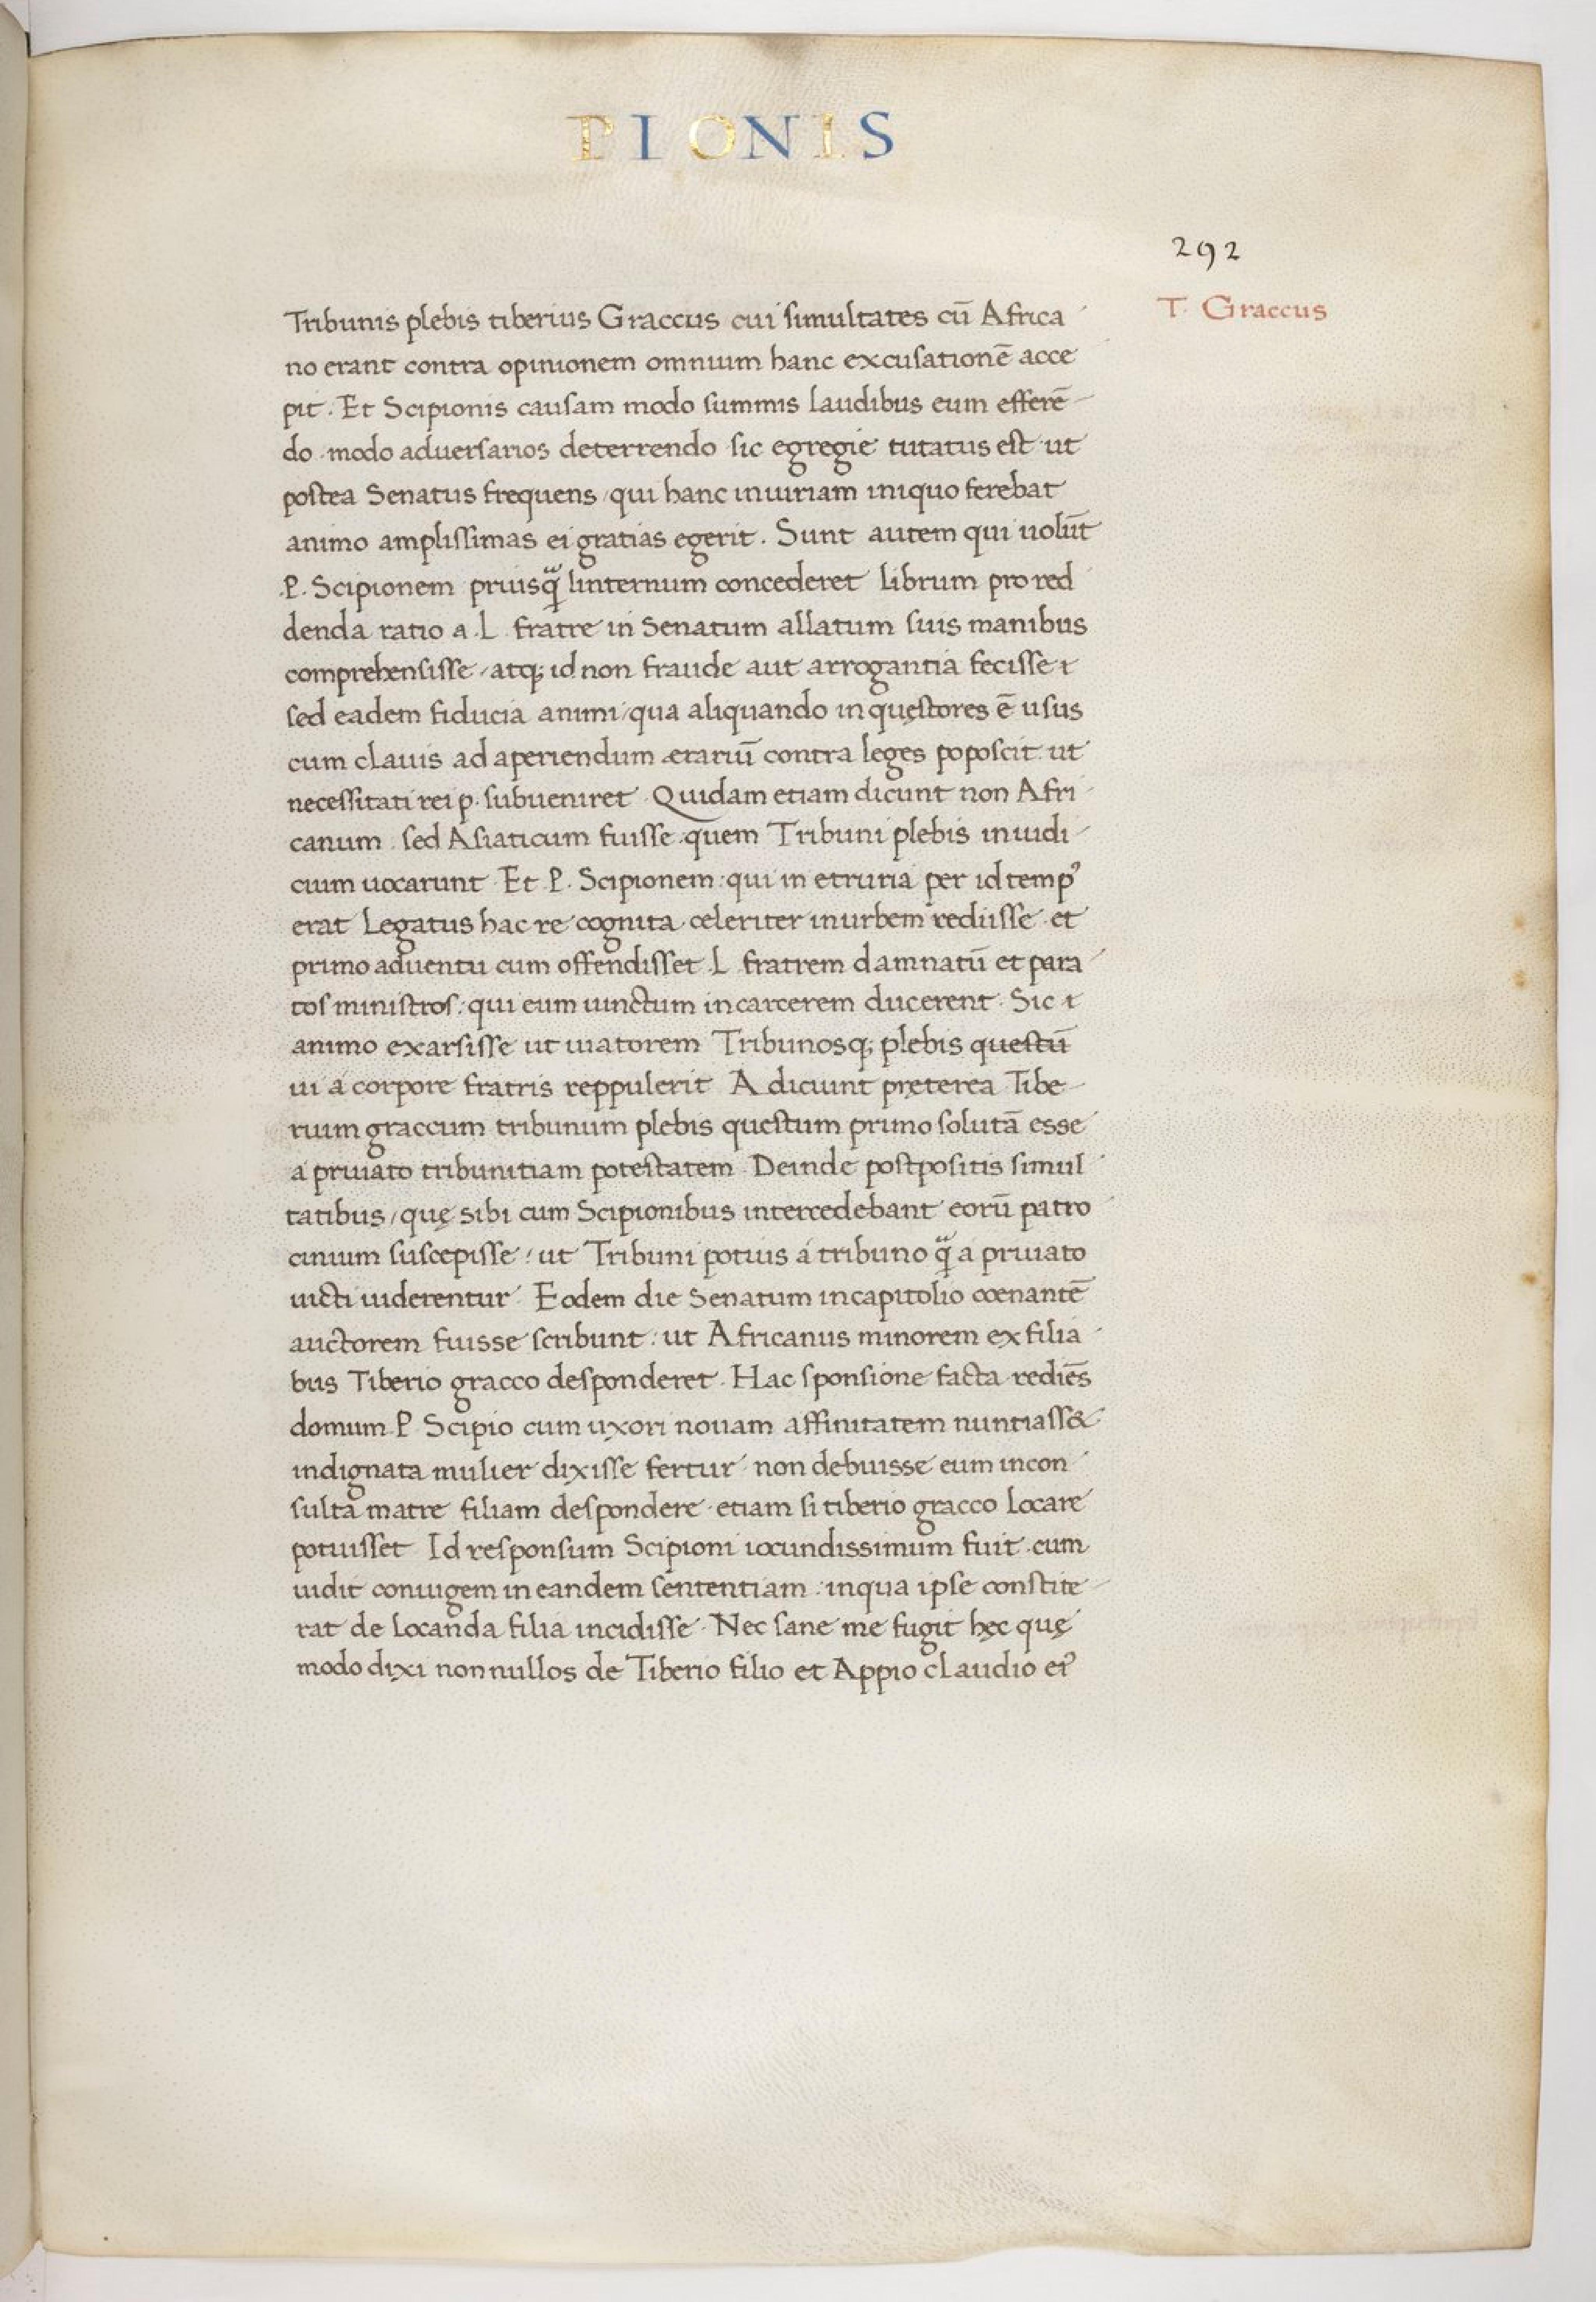 PIONIS
292
T. Graccus
Tribunis plebis tiberius Graccus cui simultates cū Africa
no erant contra opinionem omnium hanc excusationē acce
pit. Et Scipionis causam modo summis laudibus eum efferē
do modo aduersarios deterrendo sic egregie tutatus est ut
postea Senatus frequens / qui hanc iniuriam iniquo ferebat
animo amplissimas ei gratias egerit. Sunt autem qui uolūt
.P. Scipionem priusq̃ linternum concederet librum pro red
denda ratio a .L. fratre in Senatum allatum suis manibus
comprehensisse / atq; id non fraude aut arrogantia fecisse
sed eadem fiducia animi / qua aliquando in quęstores ē usus
cum clauis ad aperiendum ęrariū contra leges poposcit ut
necessitati rei p. subueniret. Quidam etiam dicunt non Afri
canum sed Asiaticum fuisse quem Tribuni plebis in iudi
cium uocarunt Et .P. Scipionem: qui in etruria per id tempꝰ
erat Legatus hac re cognita celeriter in urbem rediisse et
primo aduentu cum offendisset .L. fratrem damnatū et para
tos ministros: qui eum uinctum in carcerem ducerent. Sic
animo exarsisse ut uiatorem Tribunosq; plebis questū
ui a corpore fratris reppulerit Adiciunt pręterea Tibe
rium graccum tribunum plebis questum primo solutā esse
a priuato tribunitiam potestatem. Deinde postpositis simul
tatibus / quę sibi cum Scipionibus intercedebant eorū patro
cinium suscepisse: ut Tribuni potius a tribuno q̃ a priuato
uicti uiderentur. Eodem die Senatum in capitolio coenantē
auctorem fuisse scribunt: ut Africanus minorem ex filia
bus Tiberio gracco desponderet. Hac sponsione facta rediēs
domum .P. Scipio cum uxori nouam affinitatem nuntiass&
indignata mulier dixisse fertur non debuisse eum incon
sulta matre filiam despondere etiam si tiberio gracco locare
potuisset Id responsum Scipioni iocundissimum fuit cum
uidit coniugem in eandem sententiam: in qua ipse constite
rat de locanda filia incidisse. Nec sane me fugit hęc quę
modo dixi non nullos de Tiberio filio et Appio claudio eiꝰ